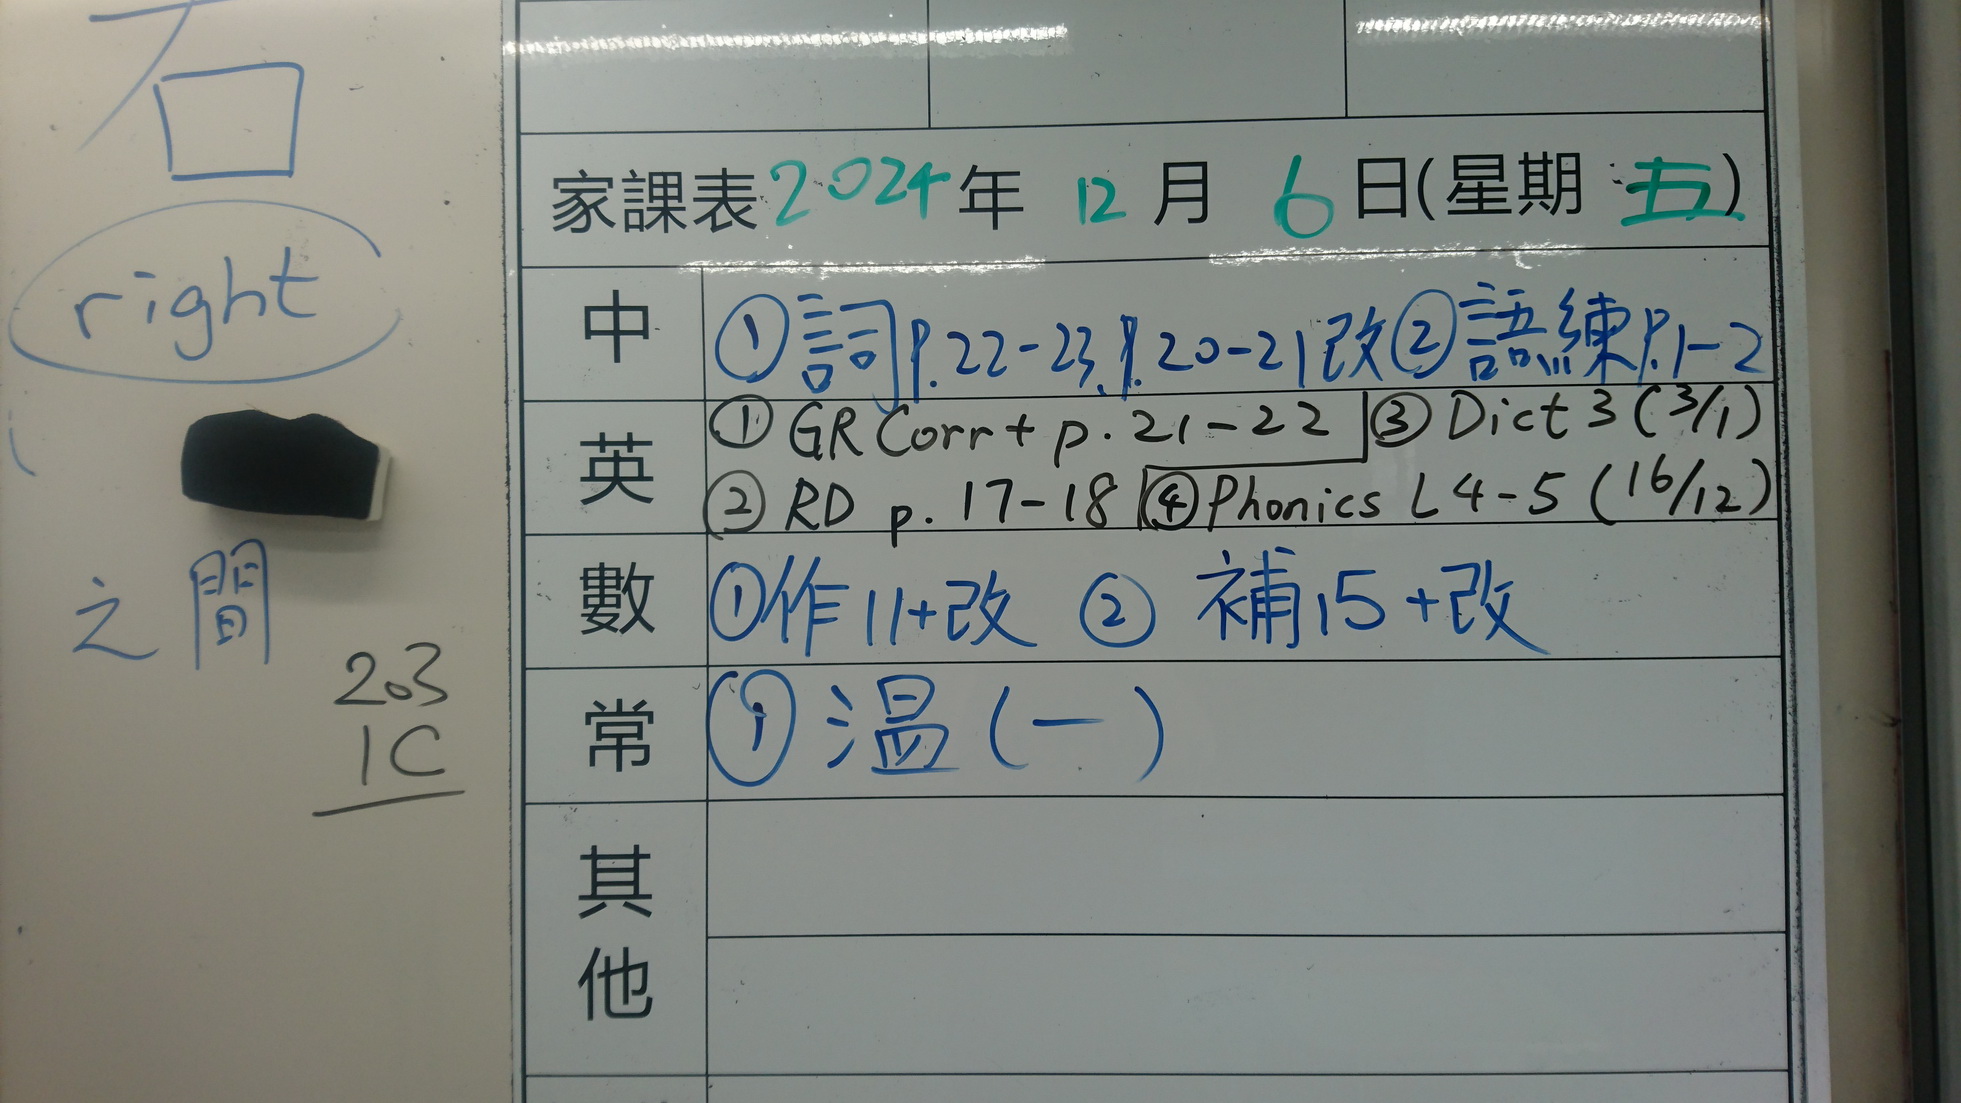 石
right
之間
203
1C
家課表2024年12月6日(星期五)
中 ①詞p.22-23, p.20-21改②語練p.1-2
英 ①GR Corr+ p.21-22 ③Dict 3 (3/1)
②RD p.17-18 ④Phonics L4-5 (16/12)
數 ①作11+改 ②補15+改
常 ①溫(一)
其他